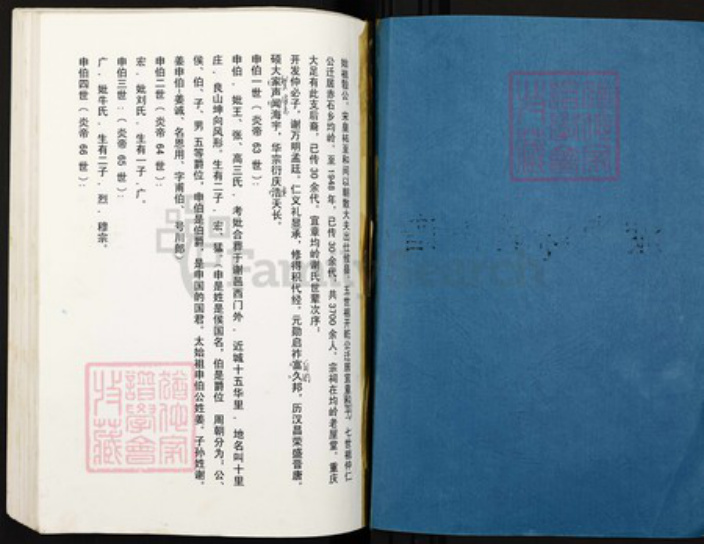 始祖勃公、宋皇祐至和间以朝散大夫出仕
公迁居赤石乡均岭、至 1948 年、已传 30 余代、共 3700 余人、宗祠在均岭老屋堂、重庆
大足有此支后裔、已传 30 余代、宜章均岭谢氏世辈次序、
开发仲必子、谢万明孟廷、仁义礼显承、修得积代经、元勋启祚富久邦、历汉昌荣盛晋唐、
硕大家声闻海宇、华宗衍庆浩天长、
申伯一世（炎帝 63 世）：
申伯．妣王、张、高三氏．考妣合葬于谢邑西门外．近城十五华里．地名叫十里
庄．良山坤向凤形．生有二子．宏、猛（申是姓是侯国名，伯是爵位 周朝分为：公、
侯、伯、子、男 五等爵位，申伯是伯爵，是申国的国君，太始祖申伯公姓姜，子孙姓谢、
姜申伯-姜诚、名恩用、字甫伯、号川郎）
申伯二世（炎帝 64 世）：
宏．妣刘氏．生有一子．广、
申伯三世．（炎帝 65 世）：
广．妣牛氏．生有二子．烈．穆宗、
申伯四世（炎帝 66 世）：
FamilySearch